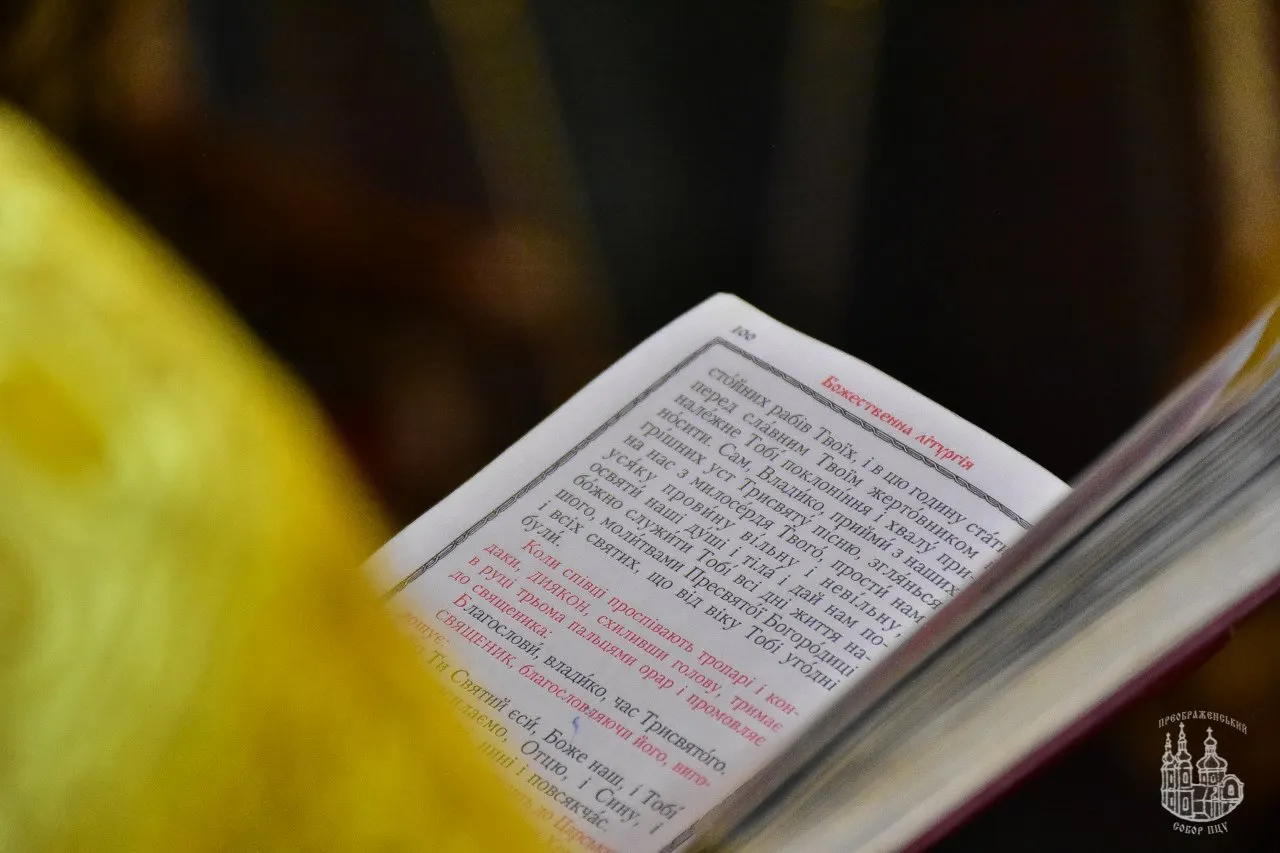 100
Божественна літургія
сто́йних рабів Твоїх, і в цю годину ста́ти
перед сла́вним Твоїм жерто́вником і
нале́жне Тобі поклоні́ння і хвалу́ при-
но́сити. Сам, Влади́ко, прийми́ з наших
грі́шних уст Трисвяту́ пісню, згля́нься
на нас з милосе́рдя Твого́, прости́ нам
уся́ку прови́ну ві́льну і неві́льну,
освяти́ наші ду́ші і тіла́ і дай нам по-
бо́жно служи́ти Тобі́ всі дні життя на-
шого, моли́твами Пресвято́ї Богоро́диці
і всіх святих, що від віку Тобі уго́дні
були.
Коли співці проспівають тропарі і кон-
даки, диякон, схиливши голову, тримає
в руці трьома пальцями орар і промовляє
до священика:
Благослови́, влади́ко, час Трисвято́го.
СВЯЩЕНИК, благословляючи його, виго-
лошує:
Ти Святий єси́, Боже наш, і Тобі
Отцю, і Сину, і
нині і повсякча́с.
до Царськ
ПРЕОБРАЖЕНСЬКИЙ
СОБОР ПЦУ